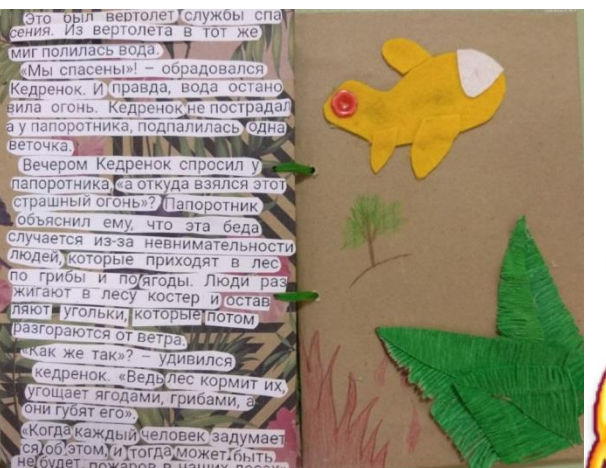 Это был вертолет службы спа
сения. Из вертолета в тот же
миг полилась вода.
«Мы спасены»! – обрадовался
Кедренок. И правда, вода остано
вила огонь. Кедренок не пострадал
а у папоротника, подпалилась одна
веточка.
Вечером Кедренок спросил у
папоротника, «а откуда взялся этот
страшный огонь»? Папоротник
объяснил ему, что эта беда
случается из-за невнимательности
людей, которые приходят в лес
по грибы и по ягоды. Люди раз
жигают в лесу костер и остав
ляют угольки, которые потом
разгораются от ветра.
«Как же так»? – удивился
кедренок. «Ведь лес кормит их,
угощает ягодами, грибами, а
они губят его».
«Когда каждый человек задумает
ся об этом, и тогда может быть
не будет пожаров в наших лесах»